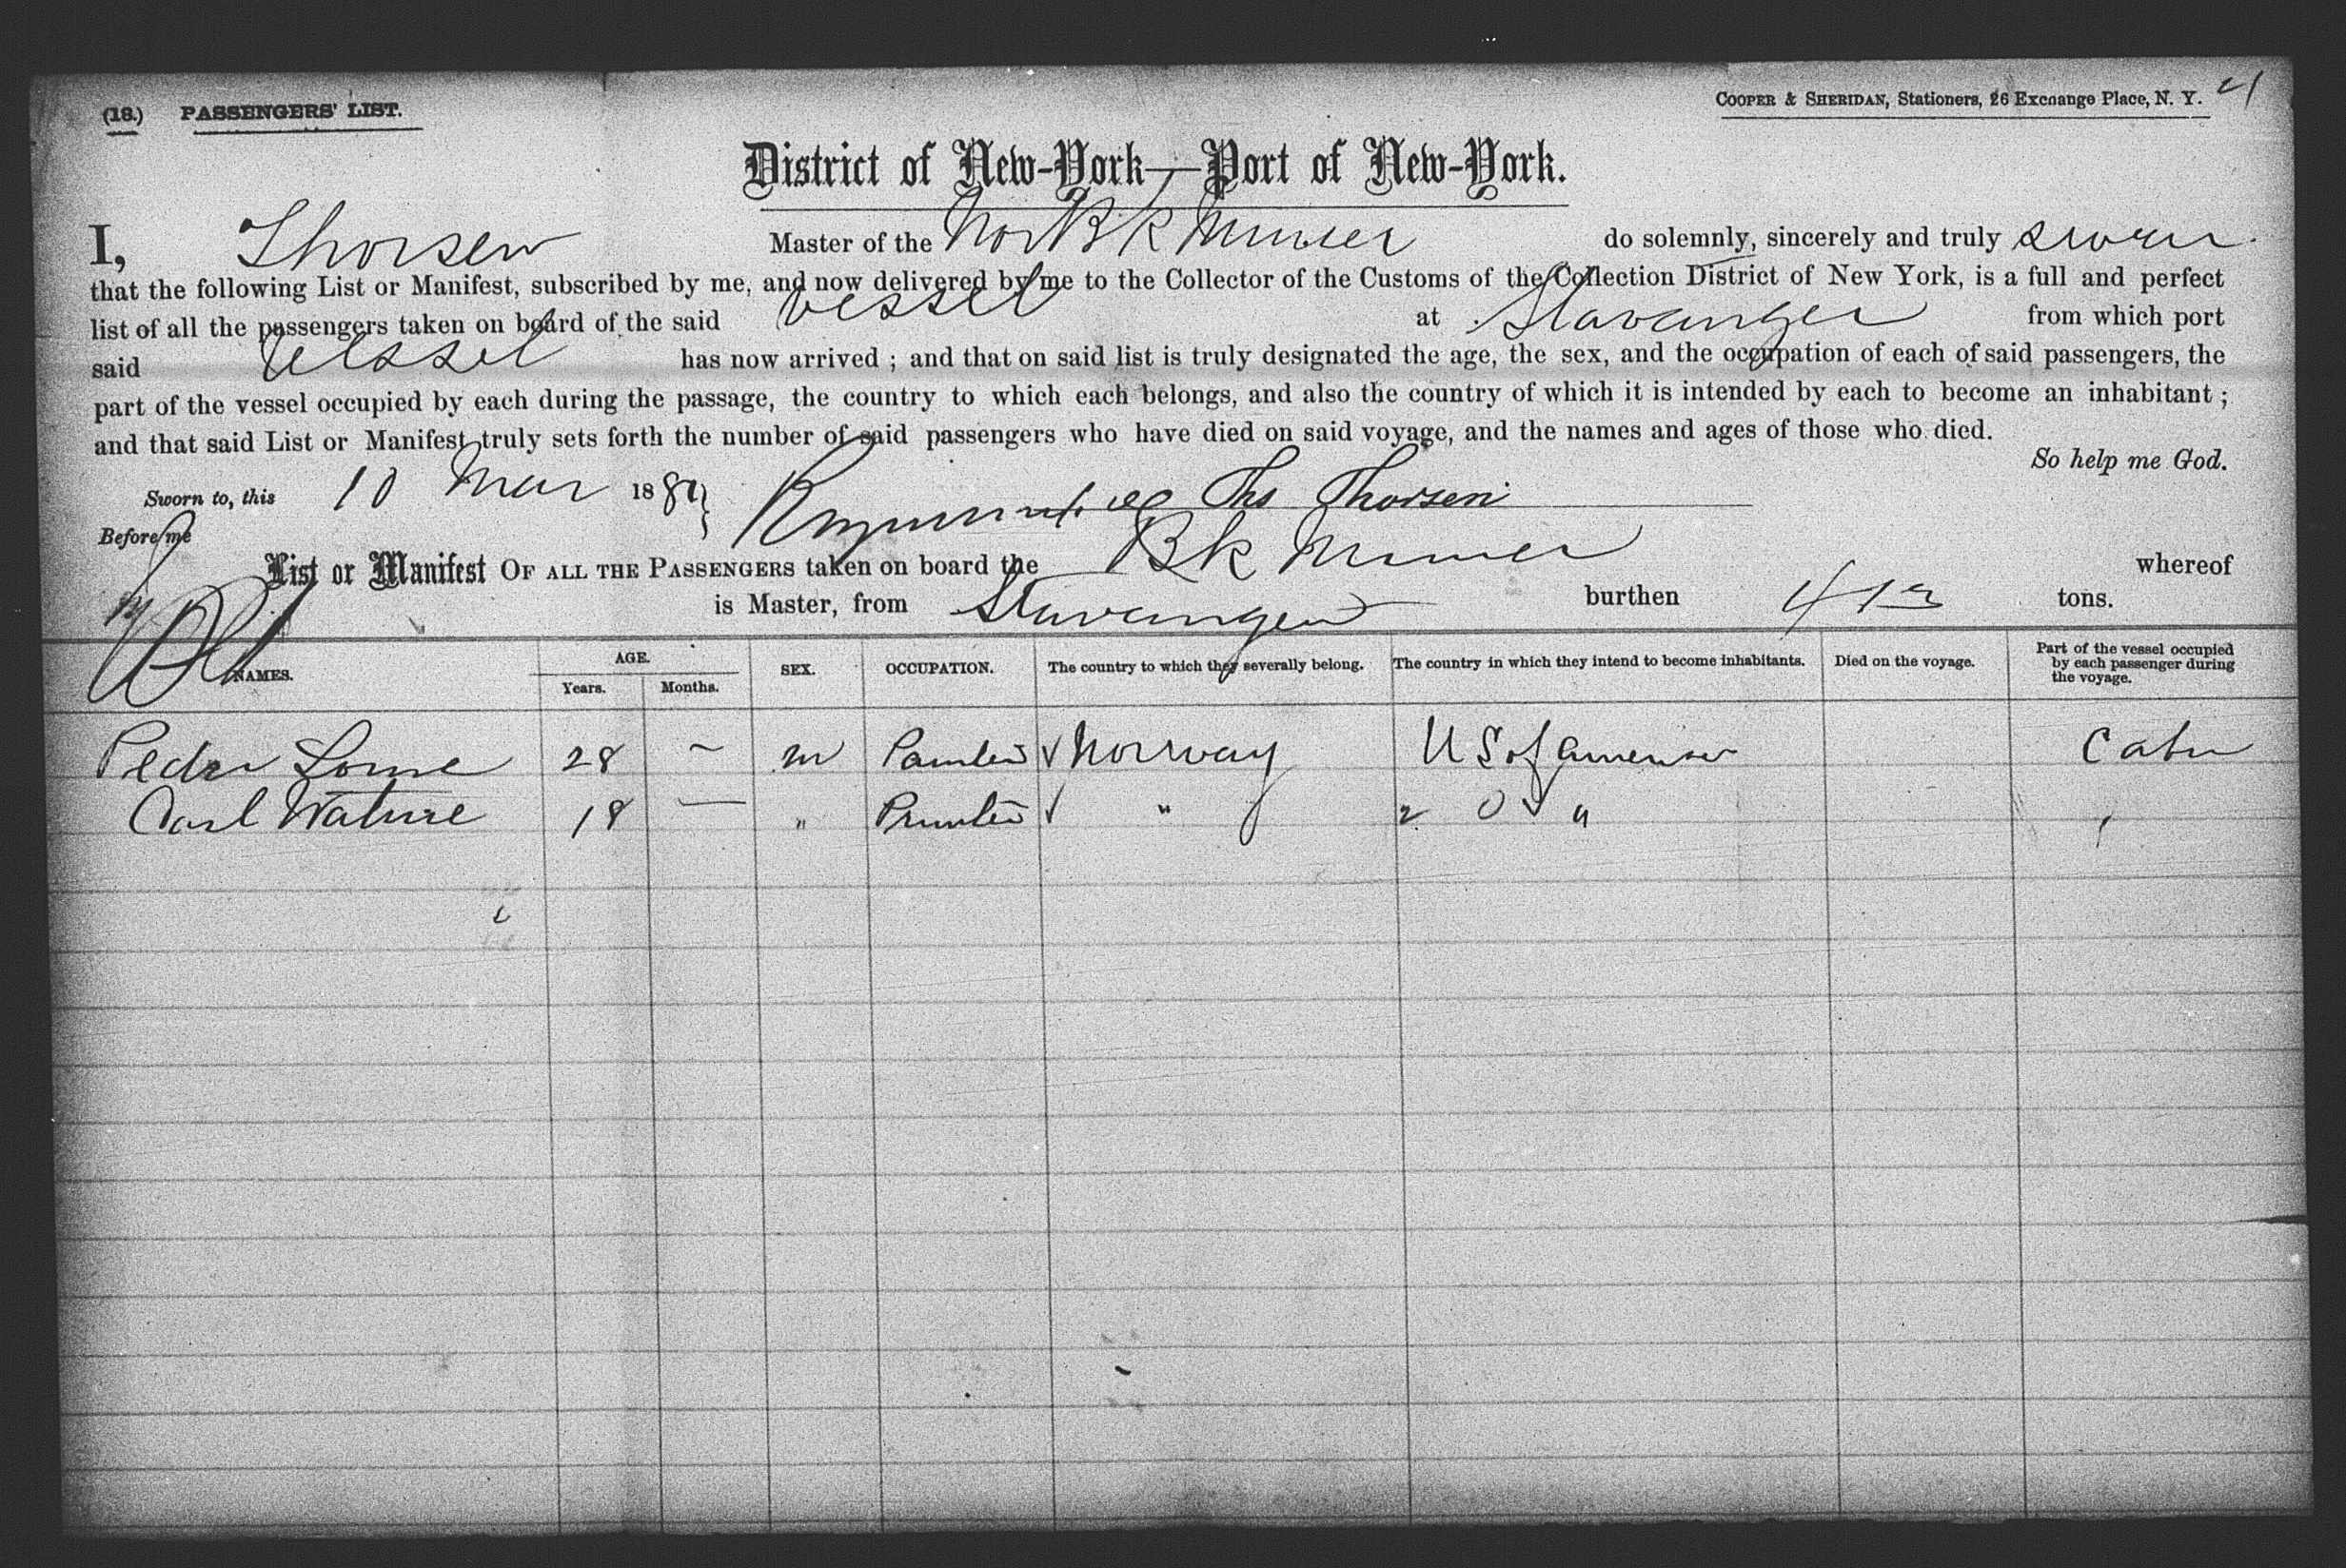 (18.) PASSENGERS' LIST.
COOPER & SHERIDAN, Stationers, 26 Exchange Place, N. Y.
District of New-York—Port of New-York.
I, Thorsen Master of the Nor Bk do solemnly, sincerely and truly swear
that the following List or Manifest, subscribed by me, and now delivered by me to the Collector of the Customs of the Collection District of New York, is a full and perfect
list of all the passengers taken on board of the said vessel at Stavanger from which port
said vessel has now arrived ; and that on said list is truly designated the age, the sex, and the occupation of each of said passengers, the
part of the vessel occupied by each during the passage, the country to which each belongs, and also the country of which it is intended by each to become an inhabitant ;
and that said List or Manifest truly sets forth the number of said passengers who have died on said voyage, and the names and ages of those who died.
So help me God.
Sworn to, this 10 Mar 188 Ths Thorsen
Before me
List or Manifest OF ALL THE PASSENGERS taken on board the Bk whereof
is Master, from Stavanger burthen 413 tons.
NAMES. AGE. Years. Months. SEX. OCCUPATION. The country to which they severally belong. The country in which they intend to become inhabitants. Died on the voyage. Part of the vessel occupied by each passenger during the voyage.
Peder 28 – m Painter ✓ Norway U S of America Cabin
Carl 18 — " ✓ " "